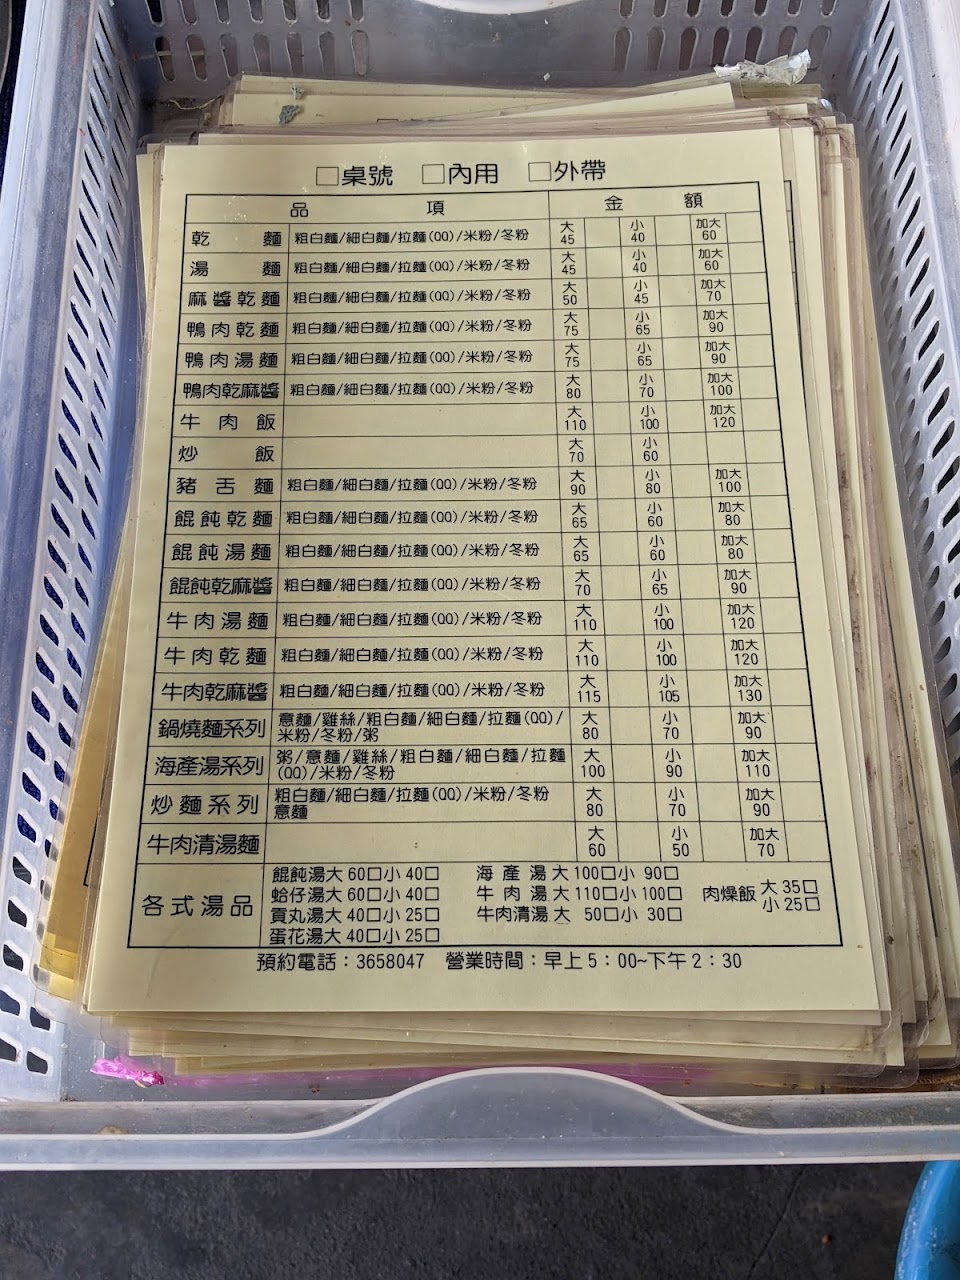 □桌號 □內用 □外帶
品項 金額
乾麵 粗白麵/細白麵/拉麵(QQ)/米粉/冬粉 大45 小40 加大60
湯麵 粗白麵/細白麵/拉麵(QQ)/米粉/冬粉 大45 小40 加大60
麻醬乾麵 粗白麵/細白麵/拉麵(QQ)/米粉/冬粉 大50 小45 加大70
鴨肉乾麵 粗白麵/細白麵/拉麵(QQ)/米粉/冬粉 大75 小65 加大90
鴨肉湯麵 粗白麵/細白麵/拉麵(QQ)/米粉/冬粉 大75 小65 加大90
鴨肉乾麻醬 粗白麵/細白麵/拉麵(QQ)/米粉/冬粉 大80 小70 加大100
牛肉飯 大110 小100 加大120
炒飯 大70 小60
豬舌麵 粗白麵/細白麵/拉麵(QQ)/米粉/冬粉 大90 小80 加大100
餛飩乾麵 粗白麵/細白麵/拉麵(QQ)/米粉/冬粉 大65 小60 加大80
餛飩湯麵 粗白麵/細白麵/拉麵(QQ)/米粉/冬粉 大65 小60 加大80
餛飩乾麻醬 粗白麵/細白麵/拉麵(QQ)/米粉/冬粉 大70 小65 加大90
牛肉湯麵 粗白麵/細白麵/拉麵(QQ)/米粉/冬粉 大110 小100 加大120
牛肉乾麵 粗白麵/細白麵/拉麵(QQ)/米粉/冬粉 大110 小100 加大120
牛肉乾麻醬 粗白麵/細白麵/拉麵(QQ)/米粉/冬粉 大115 小105 加大130
鍋燒麵系列 意麵/雞絲/粗白麵/細白麵/拉麵(QQ)/
米粉/冬粉/粥 大80 小70 加大90
海產湯系列 粥/意麵/雞絲/粗白麵/細白麵/拉麵
(QQ)/米粉/冬粉 大100 小90 加大110
炒麵系列 粗白麵/細白麵/拉麵(QQ)/米粉/冬粉
意麵 大80 小70 加大90
牛肉清湯麵 大60 小50 加大70
各式湯品
餛飩湯大60□小40□ 海產湯大100□小90□
蛤仔湯大60□小40□ 牛肉湯大110□小100□ 肉燥飯 大35□ 小25□
貢丸湯大40□小25□ 牛肉清湯大50□小30□
蛋花湯大40□小25□
預約電話：3658047 營業時間：早上5：00~下午2：30